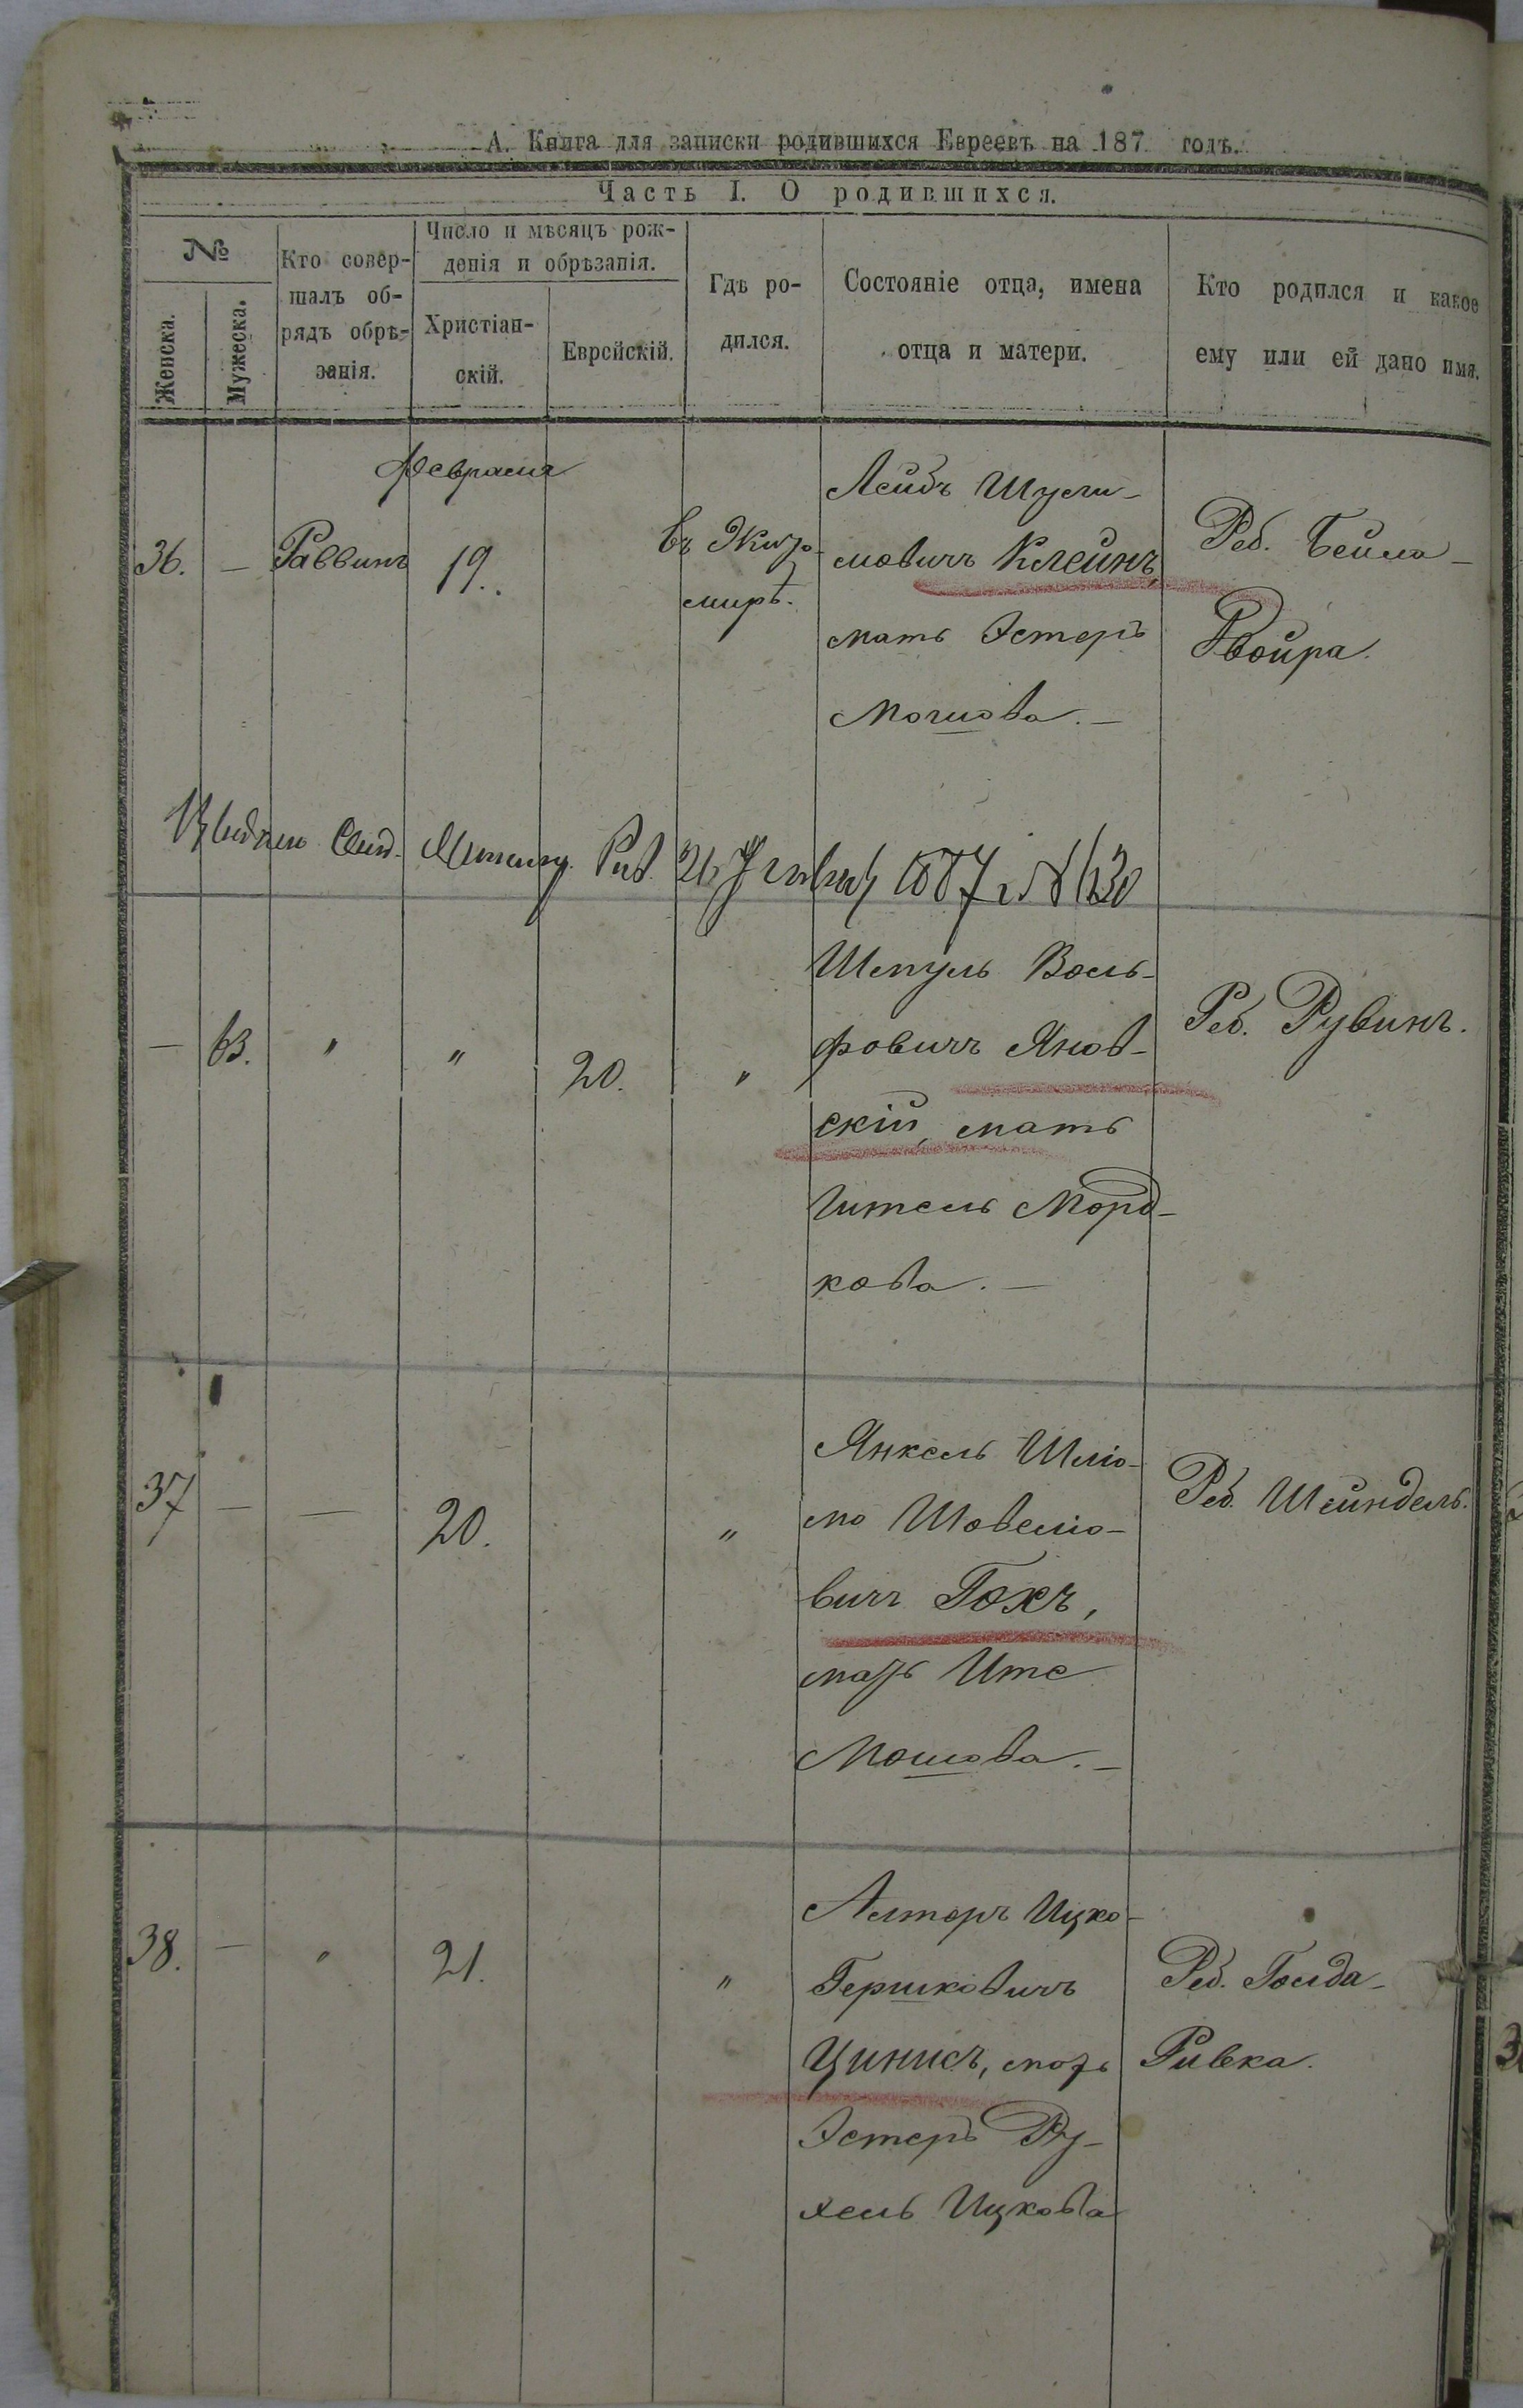 А. Книга для записки родившихся Евреевъ на 187 годъ.
Часть I. О родившихся.
№
Женска.
Мужеска.
Кто совершалъ об-
рядъ обрѣ-
занія.
Число и мѣсяцъ рож-
денія и обрѣзанія.
Христіан-
скій.
Еврейскій.
Гдѣ ро-
дился.
Состояніе отца, имена
отца и матери.
Кто родился и какое
ему или ей дано имя.
Февраля
36. — Раввинъ 19.
въ Жито-
мирѣ.
Лейбъ Шули-
мовичъ Клейнъ,
мать Эстеръ
Мошкова. —
Реб. Бейла —
Двойра.
Раб. 21 Января 1887 г. №
— 63. " " 20. "
Шепуль Воль-
фовичъ Янов-
скій, мать
Гитель Морд-
кова. —
Реб. Рувинъ.
37 — — 20. "
Янкель Шліо-
мо Шовеліо-
вичъ Гохъ,
мать Ите
Мошкова. —
Реб. Шейндель.
38. — " 21. "
Алтеръ Ицко-
Гершковичъ
Цинисъ, мать
Эстеръ Ру-
хель Ицкова
Реб. Голда-
Ривка.